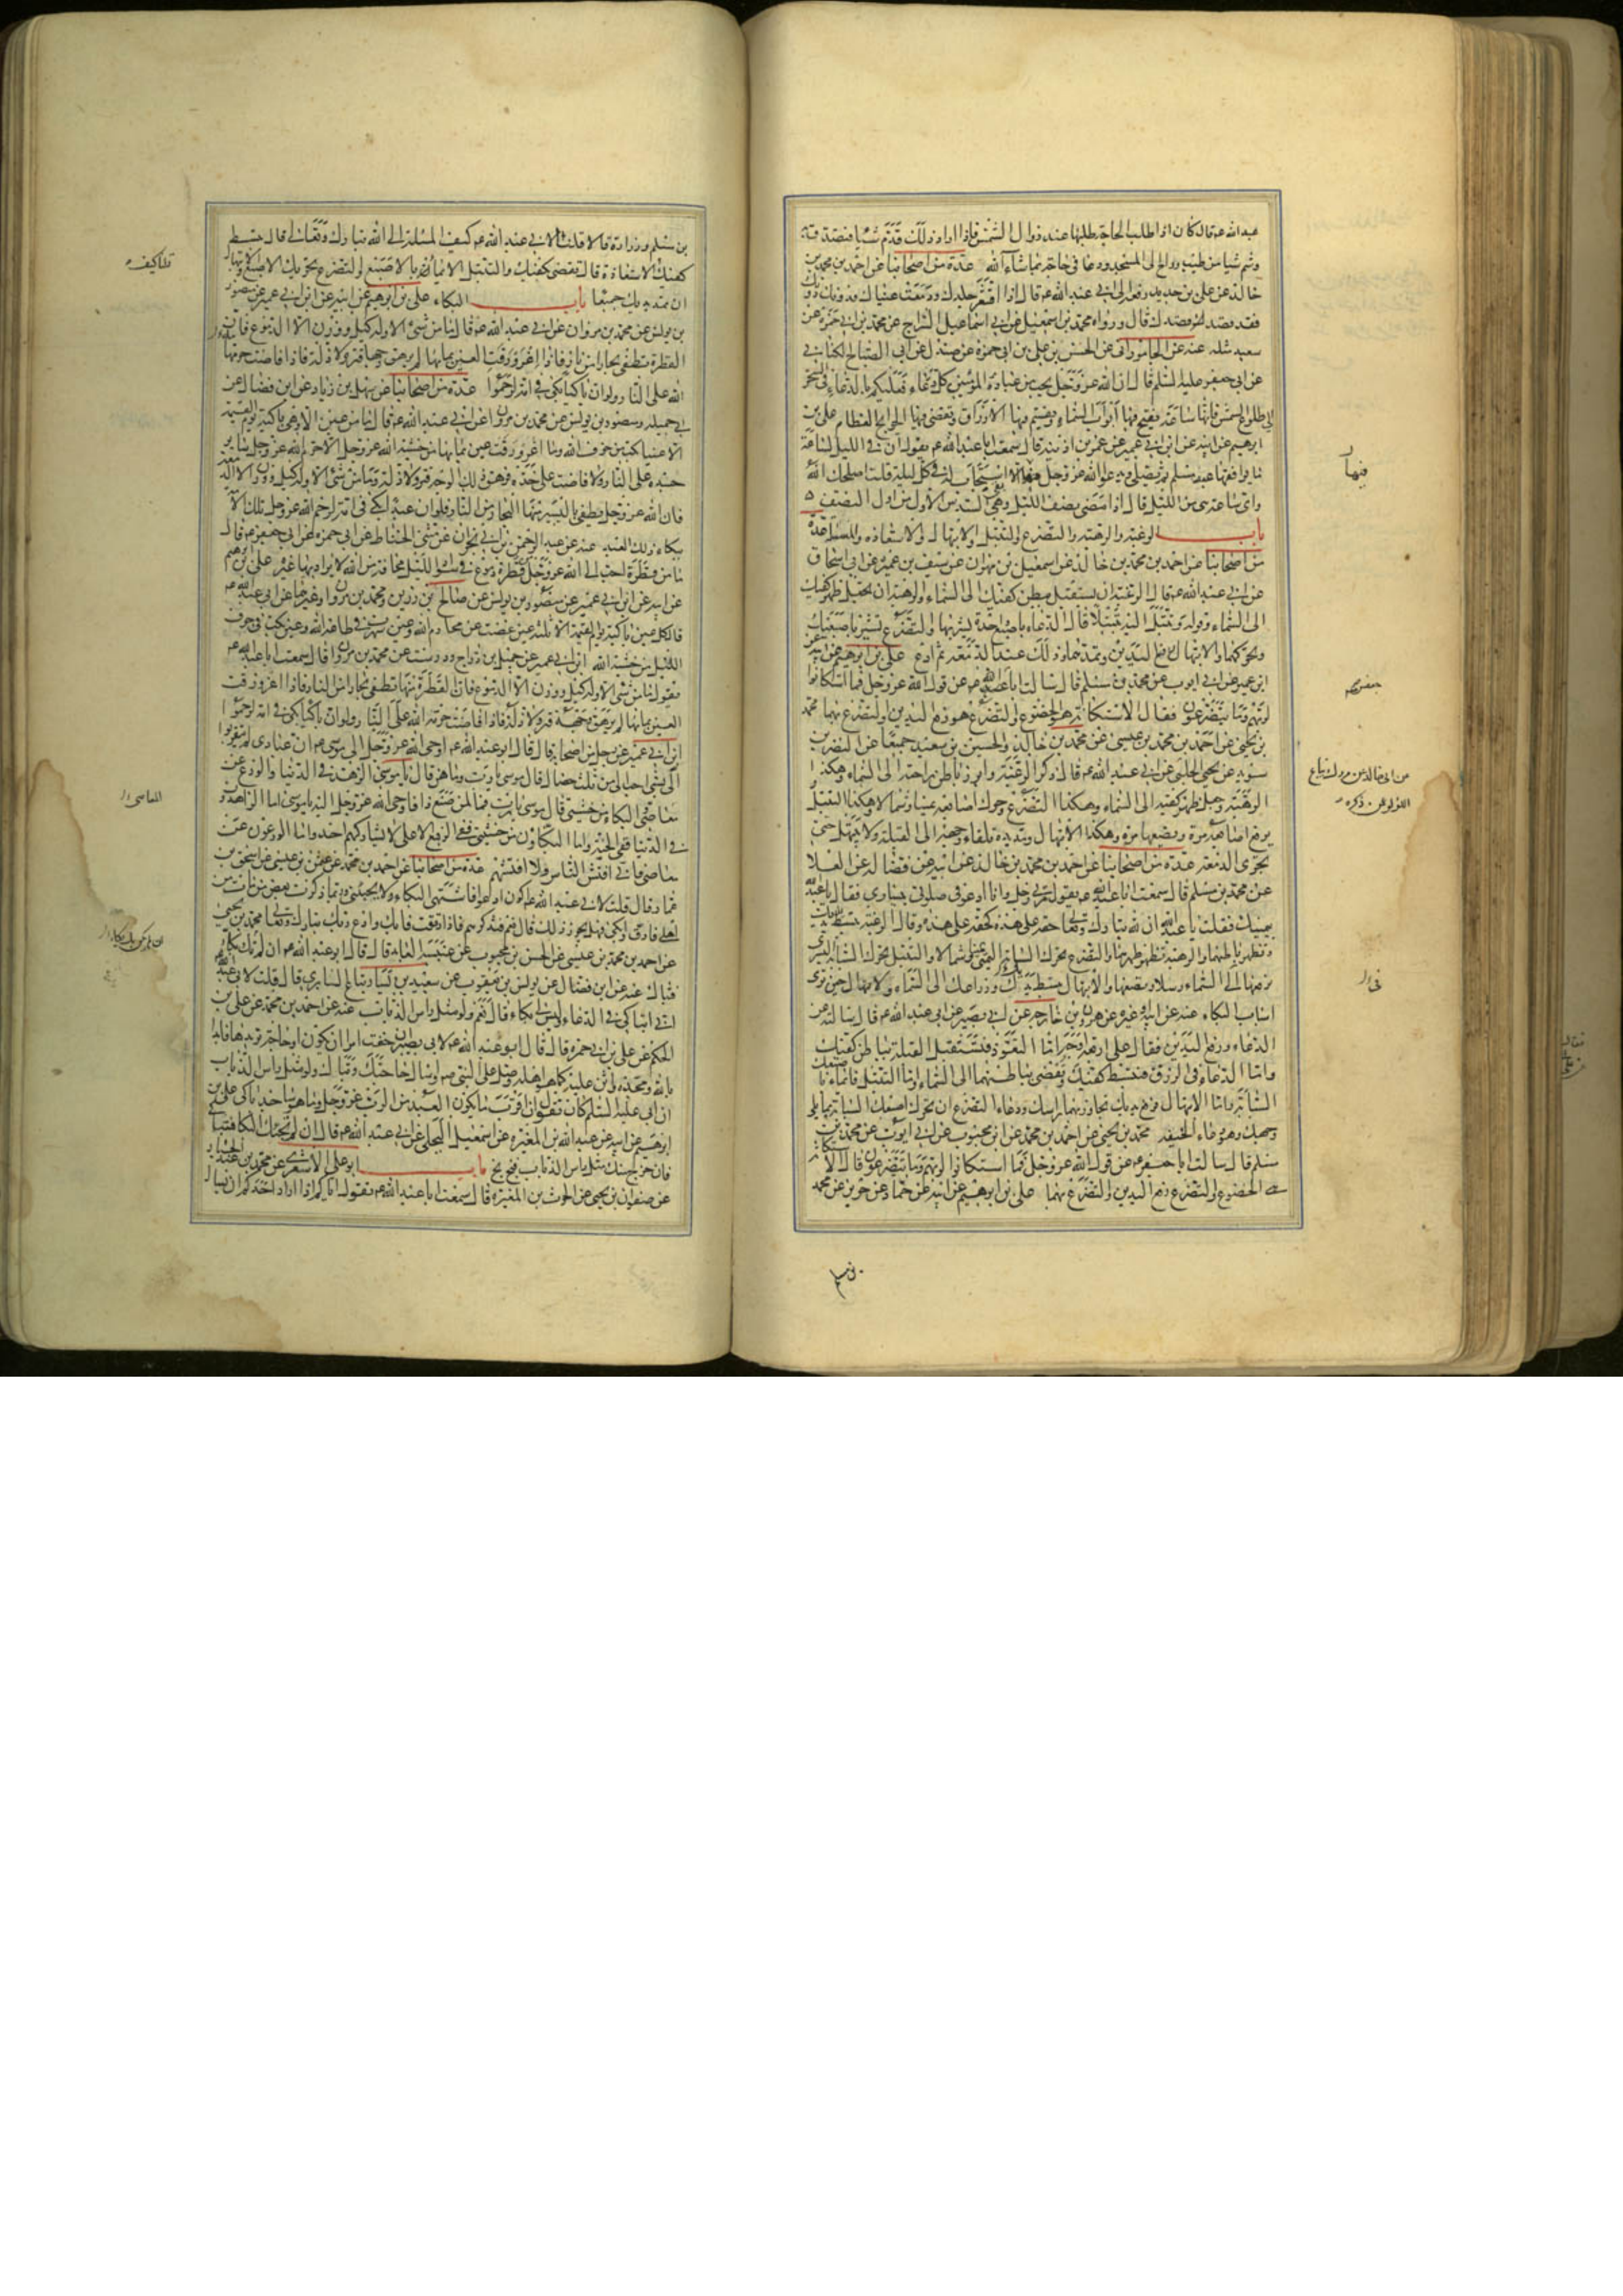 عبد الله ع قال كان اذا طلب الحاجة طلبها عند زوال الشمس فاذا اراد ذلك قدم شيئا فتصدق به
وشم شيئا من طيب وراح الى المسجد ودعا في حاجته بما شاء الله عدة من اصحابنا عن احمد بن محمد بن
خالد عن علي بن حديد رفعه الى ابي عبد الله ع قال اذا اقشعر جلدك ودمعت عيناك فدونك دونك
فقد قصد قصدك قال ورواه محمد بن اسمعيل عن ابي اسماعيل السراج عن محمد بن ابي حمزة عن
سعيد مثله عنه عن الجاموراني عن الحسن بن علي بن ابي حمزة عن صندل عن ابي الصباح الكناني
عن ابي جعفر عليه السلم قال ان الله عز وجل يحب من عباده المؤمنين كل دعاء فعليكم بالدعاء في السحر
الى طلوع الشمس فانها ساعة تفتح فيها ابواب السماء وتقسم فيها الارزاق وتقضى فيها الحوايج العظام علي بن
ابرهيم عن ابيه عن ابن ابي عمير عن عمر بن اذينه قال سمعت ابا عبد الله ع يقول ان في الليل لساعة
ما يوافقها عبد مسلم ثم يصلي ويدعو الله عز وجل فيها الا استجاب له في كل ليلة قلت اصلحك الله
واي ساعة هي من الليل قال اذا مضى نصف الليل وهي السدس الاول من اول النصف
باب الرغبة والرهبة والتضرع والتبتل والابتهال والاستعاذة والمسئلة عدة
من اصحابنا عن احمد بن محمد بن خالد عن اسمعيل بن مهران عن سيف بن عميرة عن ابي اسحاق
عن ابي عبد الله ع قال الرغبة ان تستقبل ببطن كفيك الى السماء والرهبة ان تجعل ظهر كفيك
الى السماء وقوله وتبتل اليه تبتيلا قال الدعاء باصبع واحدة تشير بها والتضرع تشير باصبعيك
وتحركهما والابتهال رفع اليدين وتمدهما وذلك عند الدمعة ثم ادع علي بن ابرهيم عن ابيه عن
ابن ابي عمير عن ابي ايوب عن محمد بن مسلم قال سالت ابا عبد الله ع عن قول الله عز وجل فما استكانوا
لربهم وما يتضرعون فقال الاستكانة هو الخضوع والتضرع هو رفع اليدين والتضرع بهما محمد
بن يحيى عن احمد بن محمد بن عيسى عن محمد بن خالد والحسين بن سعيد جميعا عن النضر بن
سويد عن يحيى الحلبي عن ابي عبد الله ع قال ذكر الرغبة وابرز باطن راحتيه الى السماء وهكذا
الرهبة وجعل ظهر كفيه الى السماء وهكذا التضرع وحرك اصابعه يمينا وشمالا وهكذا التبتل
يرفع اصابعه مرة ويضعها مرة وهكذا الابتهال ومد يده تلقاء وجهه الى القبلة ولا يبتهل حتى
تجري الدمعة عدة من اصحابنا عن احمد بن محمد بن خالد عن ابيه عن فضالة عن العلا
عن محمد بن مسلم قال سمعت ابا عبد الله ع يقول مر بي رجل وانا ادعو في صلوتي بيساري فقال يا عبد الله
بيمينك فقلت يا عبد الله ان لله تبارك وتعالى حقا على هذه كحقه على هذه وقال الرغبة تبسط يديك
وتظهر باطنهما والرهبة تظهر ظهرهما والتضرع تحرك السبابة اليمنى يمينا وشمالا والتبتل تحرك السبابة اليسرى
ترفعها الى السماء رسلا وتضعها والابتهال تبسط يديك وذراعيك الى السماء والابتهال حين ترى
اسباب البكاء عنه عن ابيه او غيره عن هرون بن خارجة عن ابي بصير عن ابي عبد الله ع قال سالته عن
الدعاء ورفع اليدين فقال على اربعة اوجه اما التعوذ فتستقبل القبلة بباطن كفيك
واما الدعاء في الرزق فتبسط كفيك وتفضي بباطنهما الى السماء واما التبتل فايماء باصبعك
السبابة واما الابتهال فرفع يديك تجاوز بهما راسك ودعاء التضرع ان تحرك اصبعك السبابة مما يلي
وجهك وهو دعاء الخيفة محمد بن يحيى عن احمد بن محمد عن ابن محبوب عن ابي ايوب عن محمد بن
مسلم قال سالت ابا جعفر ع عن قول الله عز وجل فما استكانوا لربهم وما يتضرعون قال الاستكانة
هي الخضوع والتضرع رفع اليدين والتضرع بهما علي بن ابرهيم عن ابيه عن حماد عن حريز عن محمد
بن مسلم
فيها
من ابي خالد عن مروك بياع
اللؤلؤ عمن ذكره
بن مسلم وزرارة قالا قلنا لابي عبد الله ع كيف المسئلة الى الله تبارك وتعالى قال تبسط
كفيك قلنا كيف الاستعاذة قال تفضي بكفيك والتبتل الايماء بالاصبع والتضرع تحريك الاصبع والابتهال
ان تمد يديك جميعا باب البكاء علي بن ابرهيم عن ابيه عن ابن ابي عمير عن منصور
بن يونس عن محمد بن مروان عن ابي عبد الله ع قال ما من شيء الا وله كيل ووزن الا الدموع فان
القطرة تطفي بحارا من نار فاذا اغرورقت العين بمائها لم يرهق وجها قتر ولا ذلة فاذا فاضت حرمها
الله على النار ولو ان باكيا بكى في امة لرحموا عدة من اصحابنا عن سهل بن زياد عن ابن فضال عن
ابي جميله ومنصور بن يونس عن محمد بن مروان عن ابي عبد الله ع قال ما من عين الا وهي باكية يوم القيمة
الا عينا بكت من خوف الله وما اغرورقت عين بمائها من خشية الله عز وجل الا حرم الله عز وجل ساير
جسده على النار ولا فاضت على خده فرهق ذلك الوجه قتر ولا ذلة وما من شيء الا وله كيل ووزن الا الدمعة
فان الله عز وجل يطفي باليسير منها البحار من النار فلو ان عبدا بكى في امة لرحم الله عز وجل تلك الامة
ببكاء ذلك العبد عنه عن عبد الرحمن بن ابي نجران عن مثنى الحناط عن ابي حمزة عن ابي جعفر ع قال
ما من قطرة احب الى الله عز وجل من قطرة دموع في سواد الليل مخافة من الله لا يراد بها غيره علي بن ابرهيم
عن ابيه عن ابن ابي عمير عن منصور بن يونس عن صالح بن رزين ومحمد بن مروان وغيرهما عن ابي عبد الله ع
قال كل عين باكية يوم القيمة الا ثلثة عين غضت عن محارم الله وعين سهرت في طاعة الله وعين بكت في جوف
الليل من خشية الله ابن ابي عمير عن جميل بن دراج ودرست عن محمد بن مروان قال سمعت ابا عبد الله ع
يقول ما من شيء الا وله كيل ووزن الا الدموع فان القطرة منها تطفي بحارا من النار فاذا اغرورقت
العين بمائها لم يرهق وجهه قتر ولا ذلة فاذا فاضت حرمه الله على النار ولو ان باكيا بكى في امة لرحموا
ابن ابي عمير عن رجل من اصحابه قال قال ابو عبد الله ع اوحى الله عز وجل الى موسى ع ان عبادي لم يتقربوا
الي بشيء احب الي من ثلث خصال قال موسى يا رب وما هن قال يا موسى الزهد في الدنيا والورع عن
معاصي والبكاء من خشيتي قال موسى يا رب فما لمن صنع ذا فاوحى الله عز وجل اليه يا موسى اما الزاهدون
في الدنيا ففي الجنة واما البكاؤن من خشيتي ففي الرفيع الاعلى لا يشاركهم احد واما الورعون عن
معاصي فاني افتش الناس ولا افتشهم عدة من اصحابنا عن احمد بن محمد عن عثمن بن عيسى عن اسحق بن
عمار قال قلت لابي عبد الله ع اكون ادعو فاشتهي البكاء ولا يجيئني وربما ذكرت بعض من مات من
اهلي فارق وابكي فهل يجوز ذلك قال نعم فتذكرهم فاذا رققت فابك وادع ربك تبارك وتعالى محمد بن يحيى
عن احمد بن محمد بن عيسى عن الحسن بن محبوب عن عنبسة العابد قال قال ابو عبد الله ع ان لم تك بكاء
فتباك عنه عن ابن فضال عن يونس بن يعقوب عن سعيد بن يسار بياع السابري قال قلت لابي عبد الله ع
اني اتباكى في الدعاء وليس لي بكاء قال نعم ولو مثل راس الذباب عنه عن احمد بن محمد عن علي بن
الحكم عن علي بن ابي حمزة قال قال ابو عبد الله ع لابي بصير ان خفت امرا يكون او حاجة تريدها فابدا
بالله ومجده واثن عليه كما هو اهله وصل على النبي ص وسل حاجتك وتباك ولو مثل راس الذباب
ان ابي عليه السلم كان يقول ان اقرب ما يكون العبد من الرب عز وجل وهو ساجد باك علي بن
ابرهيم عن ابيه عن عبد الله بن المغيرة عن اسمعيل البجلي عن ابي عبد الله ع قال ان لم يجئك البكا فتباك
فان خرج منك مثل راس الذباب فبخ بخ باب ابو علي الاشعري عن محمد بن عبد الجبار
عن صفوان بن يحيى عن الحرث بن المغيرة قال سمعت ابا عبد الله ع يقول اياكم اذا اراد احدكم ان يسال
قلنا كيف
المعاصي